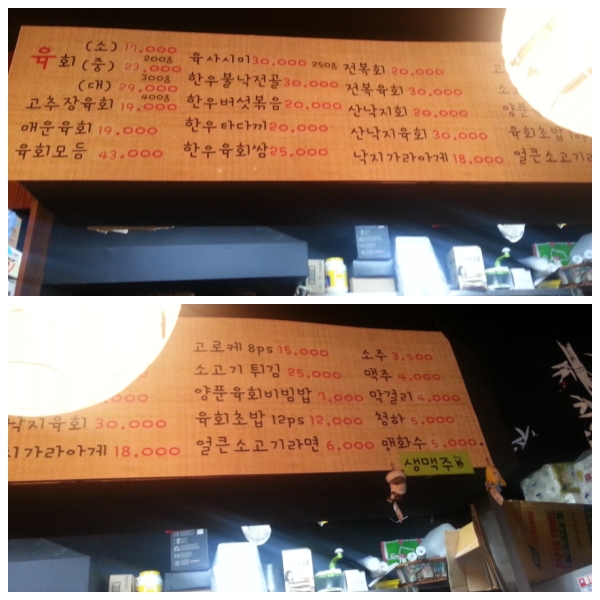 육회 (소) 17,000
200g
(중) 23,000
300g
(대) 29,000
400g
고추장육회 19,000
매운육회 19,000
육회모듬 43,000
육사시미 30,000 250g
한우불낙전골 30,000
한우버섯볶음 20,000
한우타다끼 20,000
한우육회쌈 25,000
전복회 20,000
전복육회 30,000
산낙지회 20,000
산낙지육회 30,000
낙지가라아게 18,000
고
소
양푼
육회초밥 12p
얼큰소고기라
낙지육회 30,000
지가라아게 18,000
고로케 8ps 15,000
소고기 튀김 25,000
양푼육회비빔밥 7,000
육회초밥 12ps 12,000
얼큰소고기라면 6,000
소주 3,500
맥주 4,000
막걸리 4,000
청하 5,000
매화수 5,000
생맥주